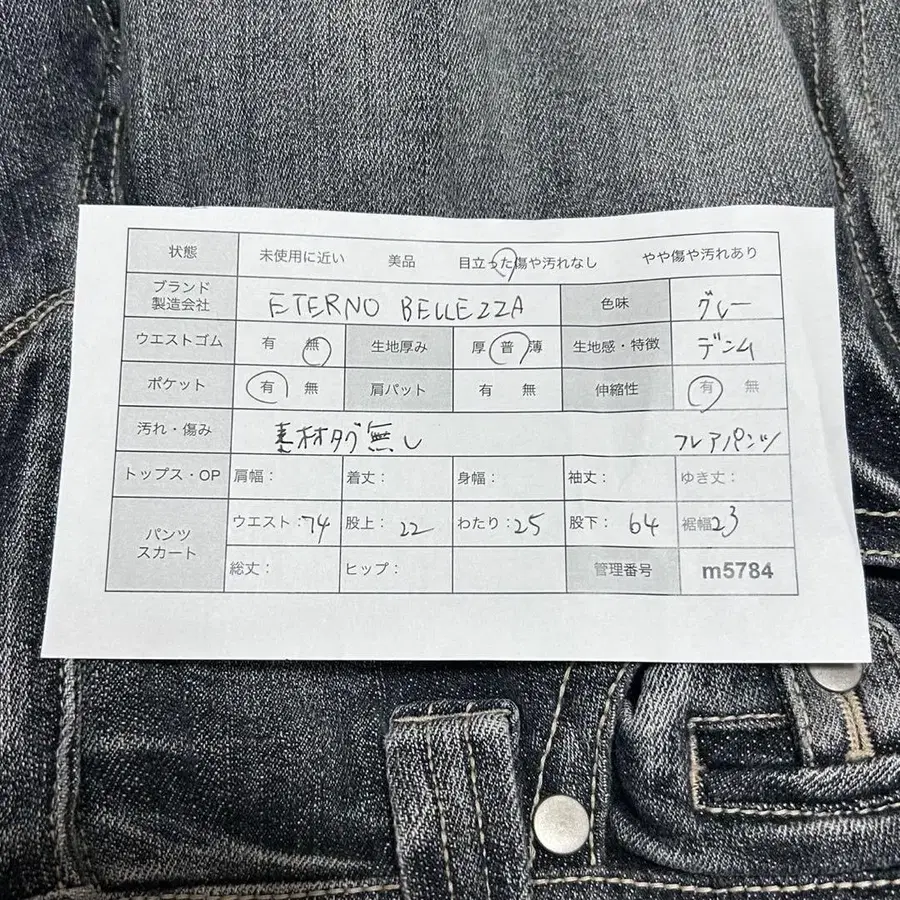 状態 未使用に近い 美品 目立った傷や汚れなし やや傷や汚れあり
ブランド 製造会社 ETERNO BELLEZZA 色味 グレー
ウエストゴム 有 無 生地厚み 厚 普 薄 生地感・特徴 デンム
ポケット 有 無 肩パット 有 無 伸縮性 有 無
汚れ・傷み 素材タグ無し フレアパンツ
トップス・OP 肩幅: 着丈: 身幅: 袖丈: ゆき丈:
パンツ スカート ウエスト:74 股上:22 わたり:25 股下:64 裾幅23
総丈: ヒップ: 管理番号 m5784